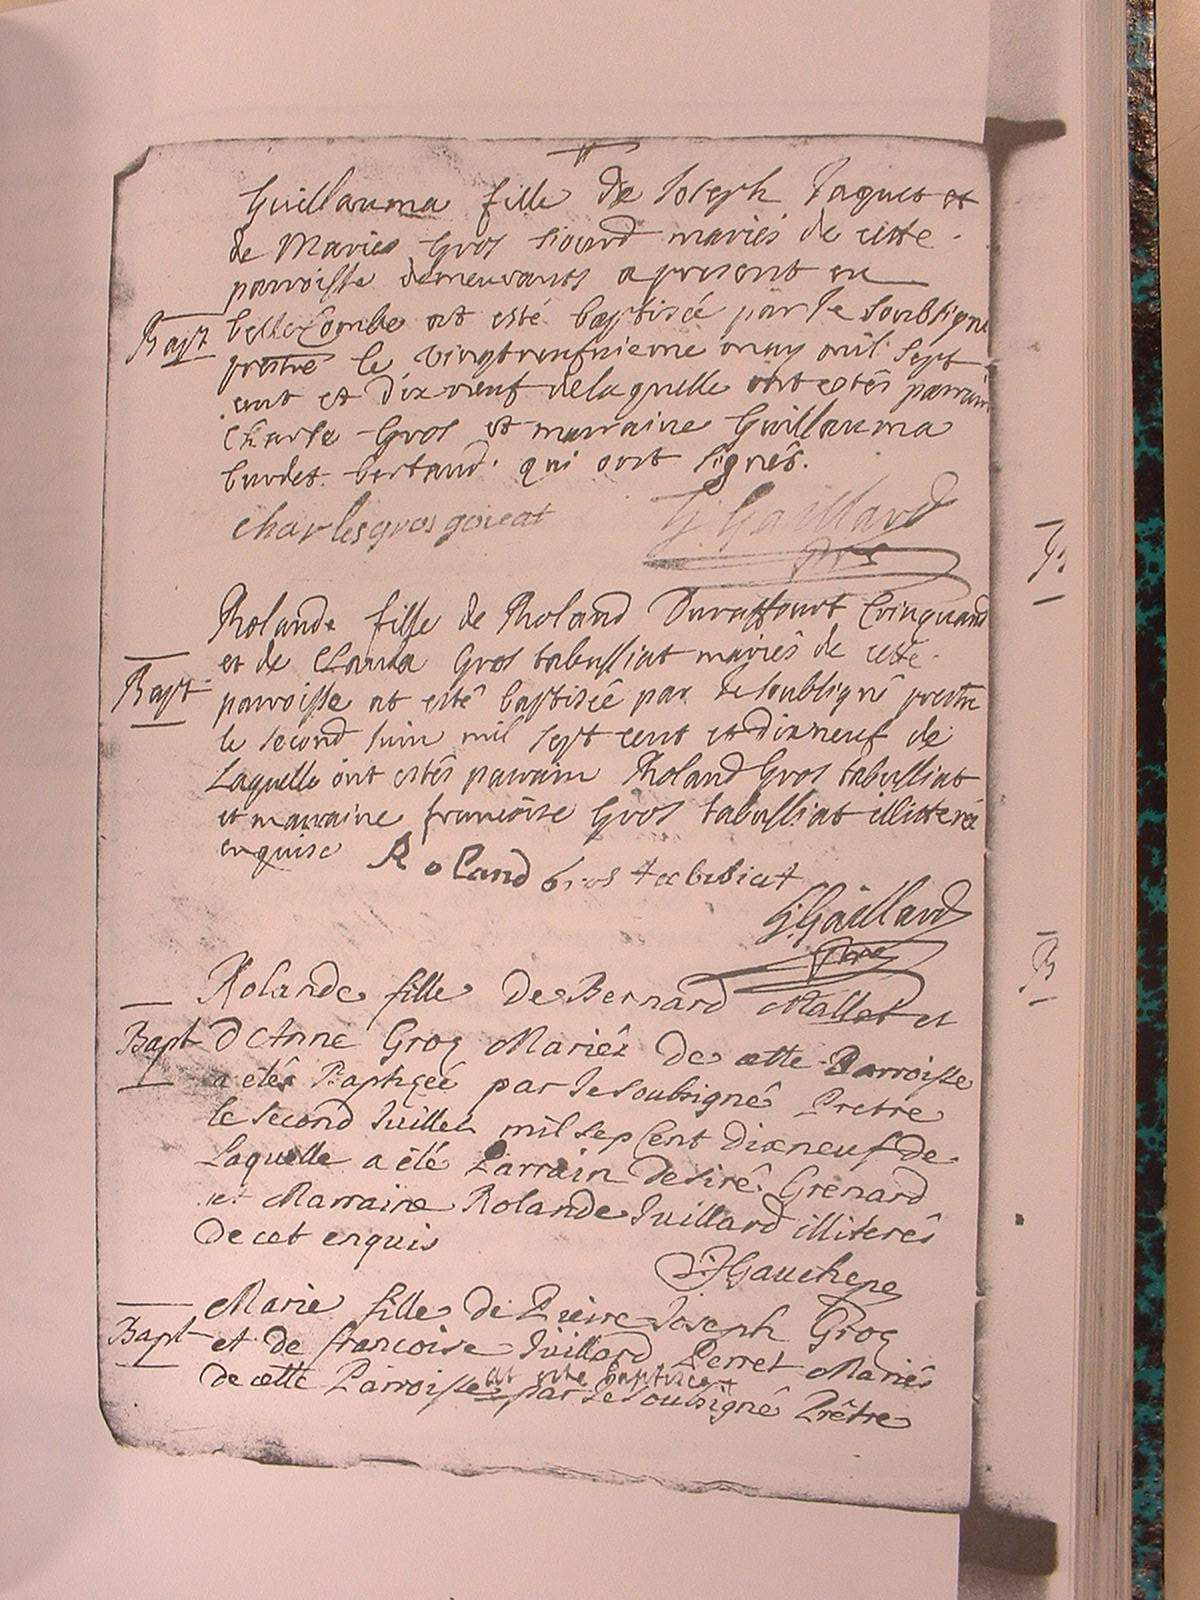 Guillauma fille de Joseph Jaquet et
de Marie Gros mariés de cette
parroisse demeurants a present en
Bapt bellecombe at esté baptisée par le soubsigné
prestre le vingtneufvieme may mil sept
cent et dix neuf de laquelle ont estés parrain
Charle Gros et marraine Guillauma
burdet bertaud qui ont signés.
charles gros goveat G. Gaillard
pbre
Rolande fille de Roland Duraffourt
et de Clauda Gros tabussiat mariés de cette
Bapt parroisse at esté baptisée par le soubsigné prestre
le second juin mil sept cent et dixneuf de
Laquelle ont estés parrain Roland Gros tabussiat
et marraine francoise Gros tabussiat illitterée
enquise Roland Gros tabusiat
G. Gaillard
pbre
Rolande fille de Bernard Mallet et
Bapt d Anne Gros Mariéz de cette Parroisse
a etée Baptizée par le soubsigné Pretre
le second Juillet mil sep Cent dixneuf de
Laquelle a été Parrain desiré Grenard
et Marraine Rolande Juillard illiterés
de cet enquis
J Gauthene
Marie fille de Pierre Joseph Gros
Bapt et de francoise Juillard Perret Mariés
at esté baptisée
de cette Parroisse par le soubsigné Prêtre